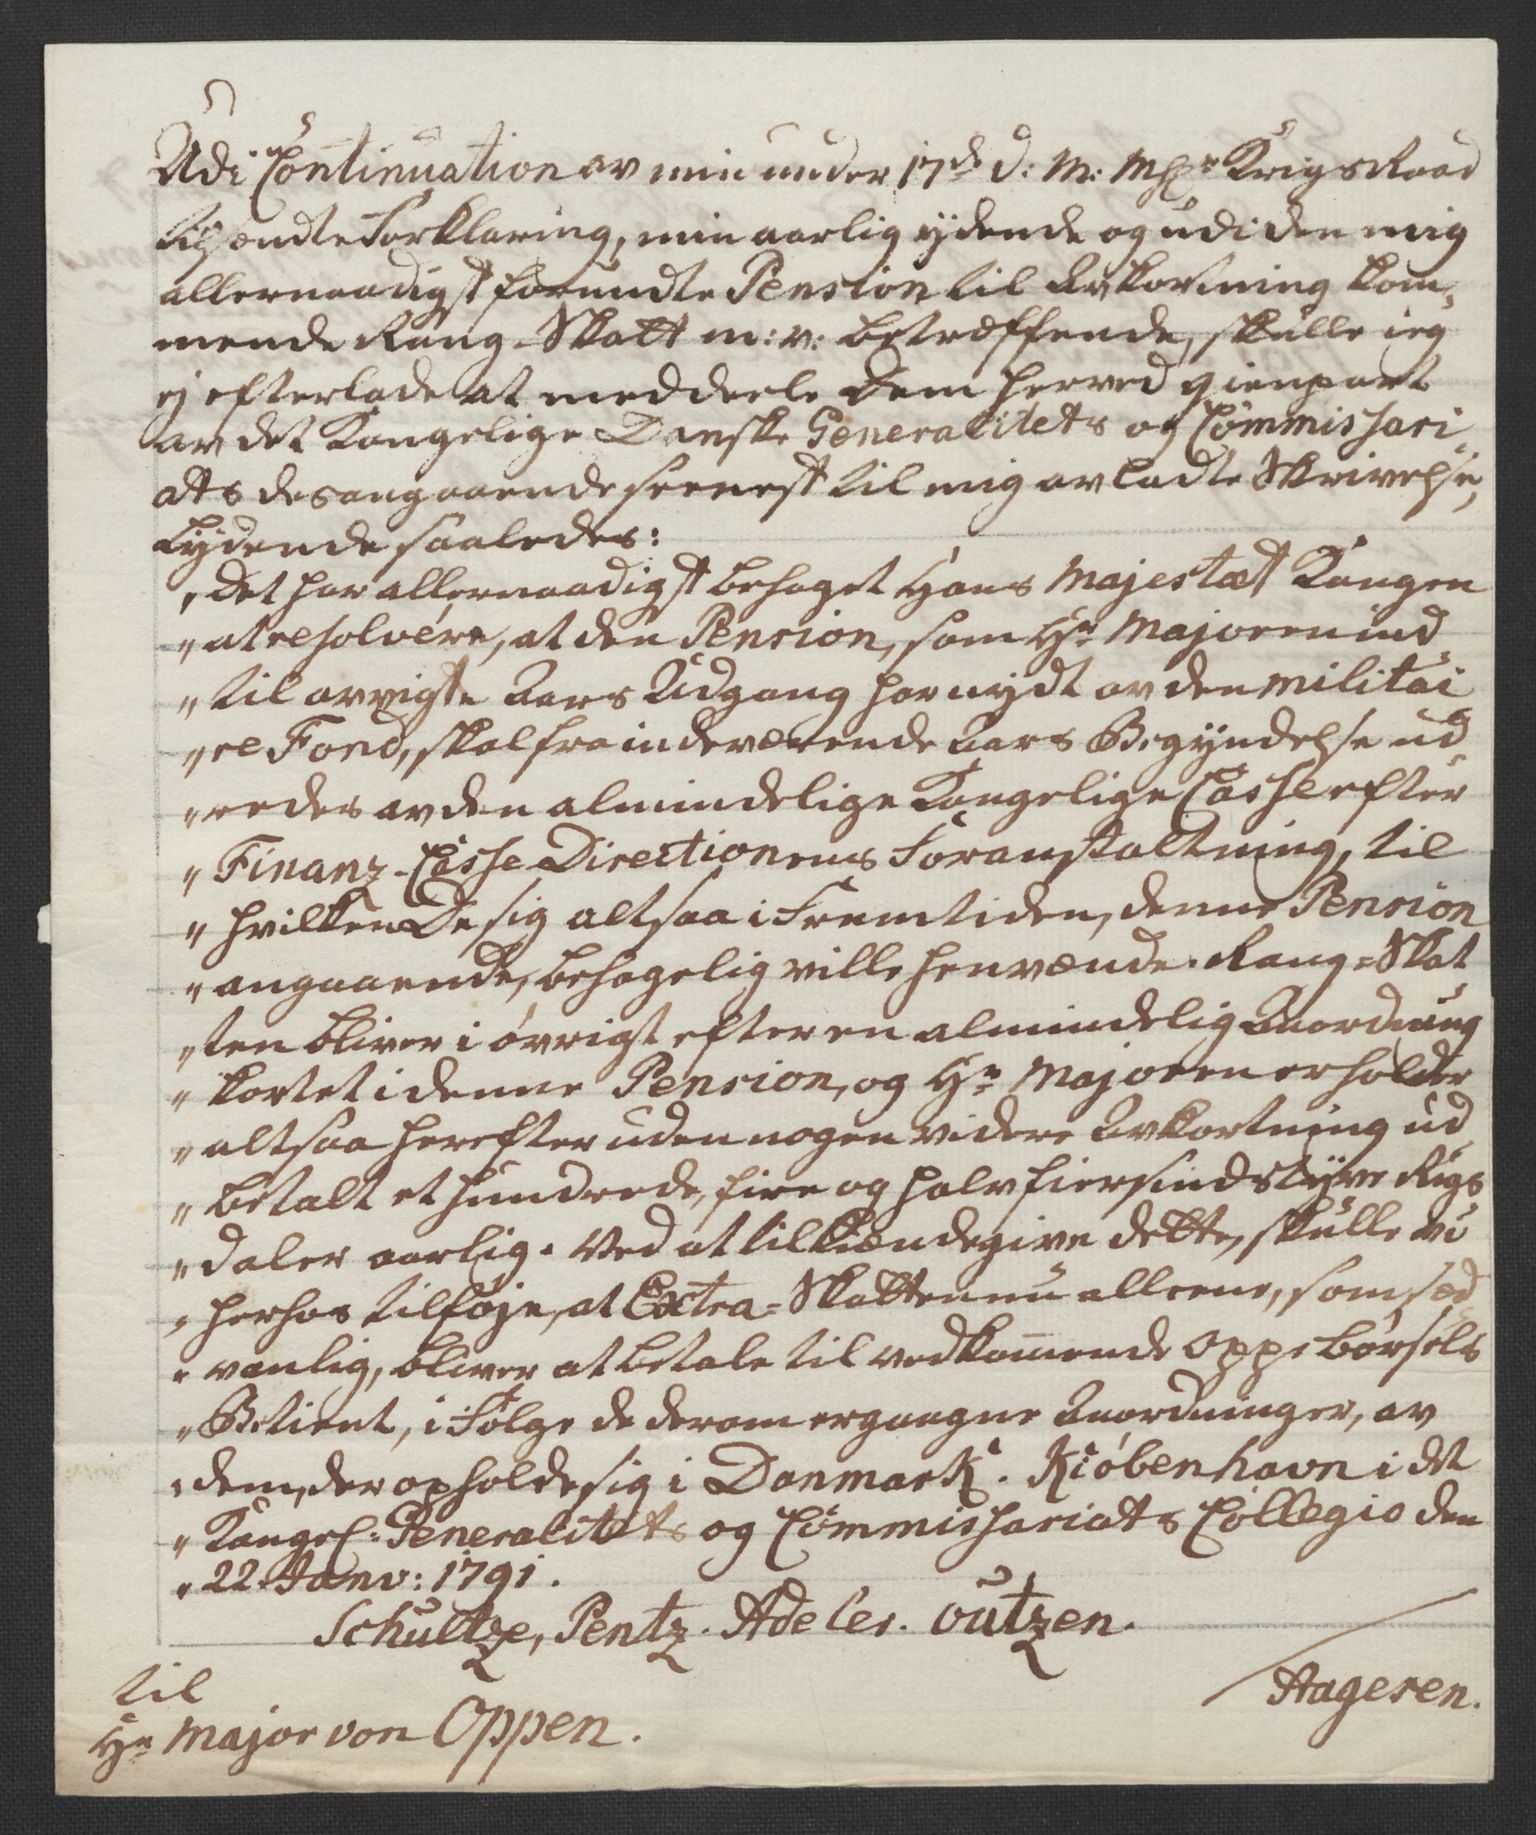 Udi Continuation av min under 17de d: M: Hr Krigs Raad
tilsendte Forklaring, min aarlig ydende og udi den mig
allernaadigst forundte Pension til Avkortning kom-
mende Rang-Skatt m: v: betræffende, skulle ieg
ej efterlade at meddeele Dem herved gienpart
av det Kongelige Danske Generalitets og Commissari-
ats desangaaende seenest til mig avladte Skrivelse,
Lydende saaledes:
„Det har allernaadigst behaget Hans Majestæt Kongen
„at resolvere, at den Pension, som Hr Majoren ind-
„til avvigte Aars Udgang har nydt av den militai-
„re Fond, skal fra indeværende Aars Begyndelse ud-
„redes av den almindelige Kongelige Casse efter
„Finanz-Casse-Directionens Foranstaltning, til
„hvilken De sig altsaa i Fremtiden, denne Pension
„angaaende, behagelig ville henvænde. Rang-Skat-
„ten bliver i øvrigt efter en almindelig Anordning
„kortet i denne Pension, og Hr Majoren erholder
„altsaa herefter uden nogen videre Avkortning ud-
„betalt et hundrede, fire og halvfiersindstyve Rigs-
„daler aarlig. Ved at tilkiændegive dette, skulle vi
„herhos tilføje, at Extra-Skatten nu alleene, som sæd-
„vanlig, bliver at betale til vedkommende Oppebørsels
„Betient, i Følge de derom ergangne Anordninger, av
„dem, der opholde sig i Danmark. Kiøbenhavn i det
„Kongel: Generalitets og Commissariats Collegio den
„22 Janv: 1791.
Schultze, Pentz. Adeler. Outzen.
Aagesen.
til
Hr Major von Oppen.